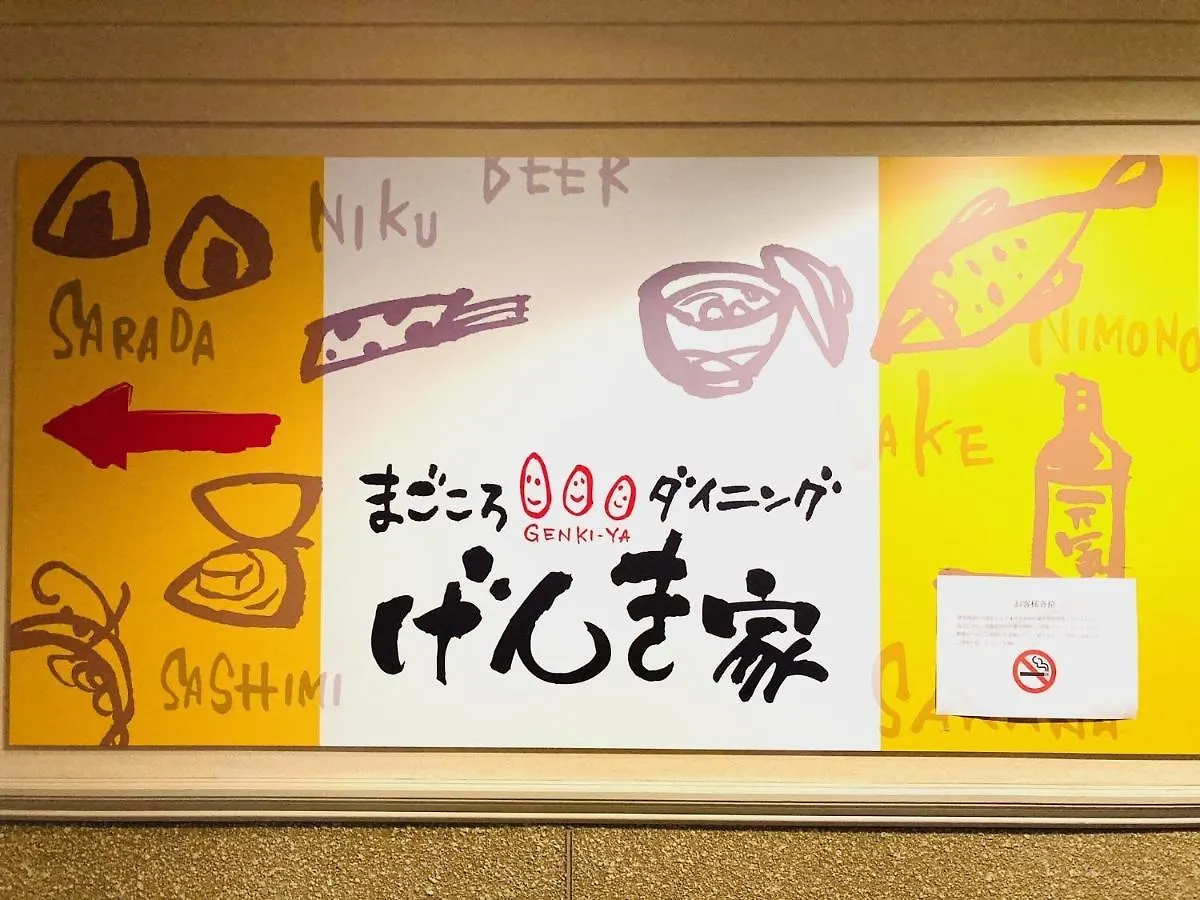 BEER
NIKU
SARADA
NIMONO
AKE
まごころ ダイニング
GENKI-YA
げんき家
SASHIMI
お客様各位